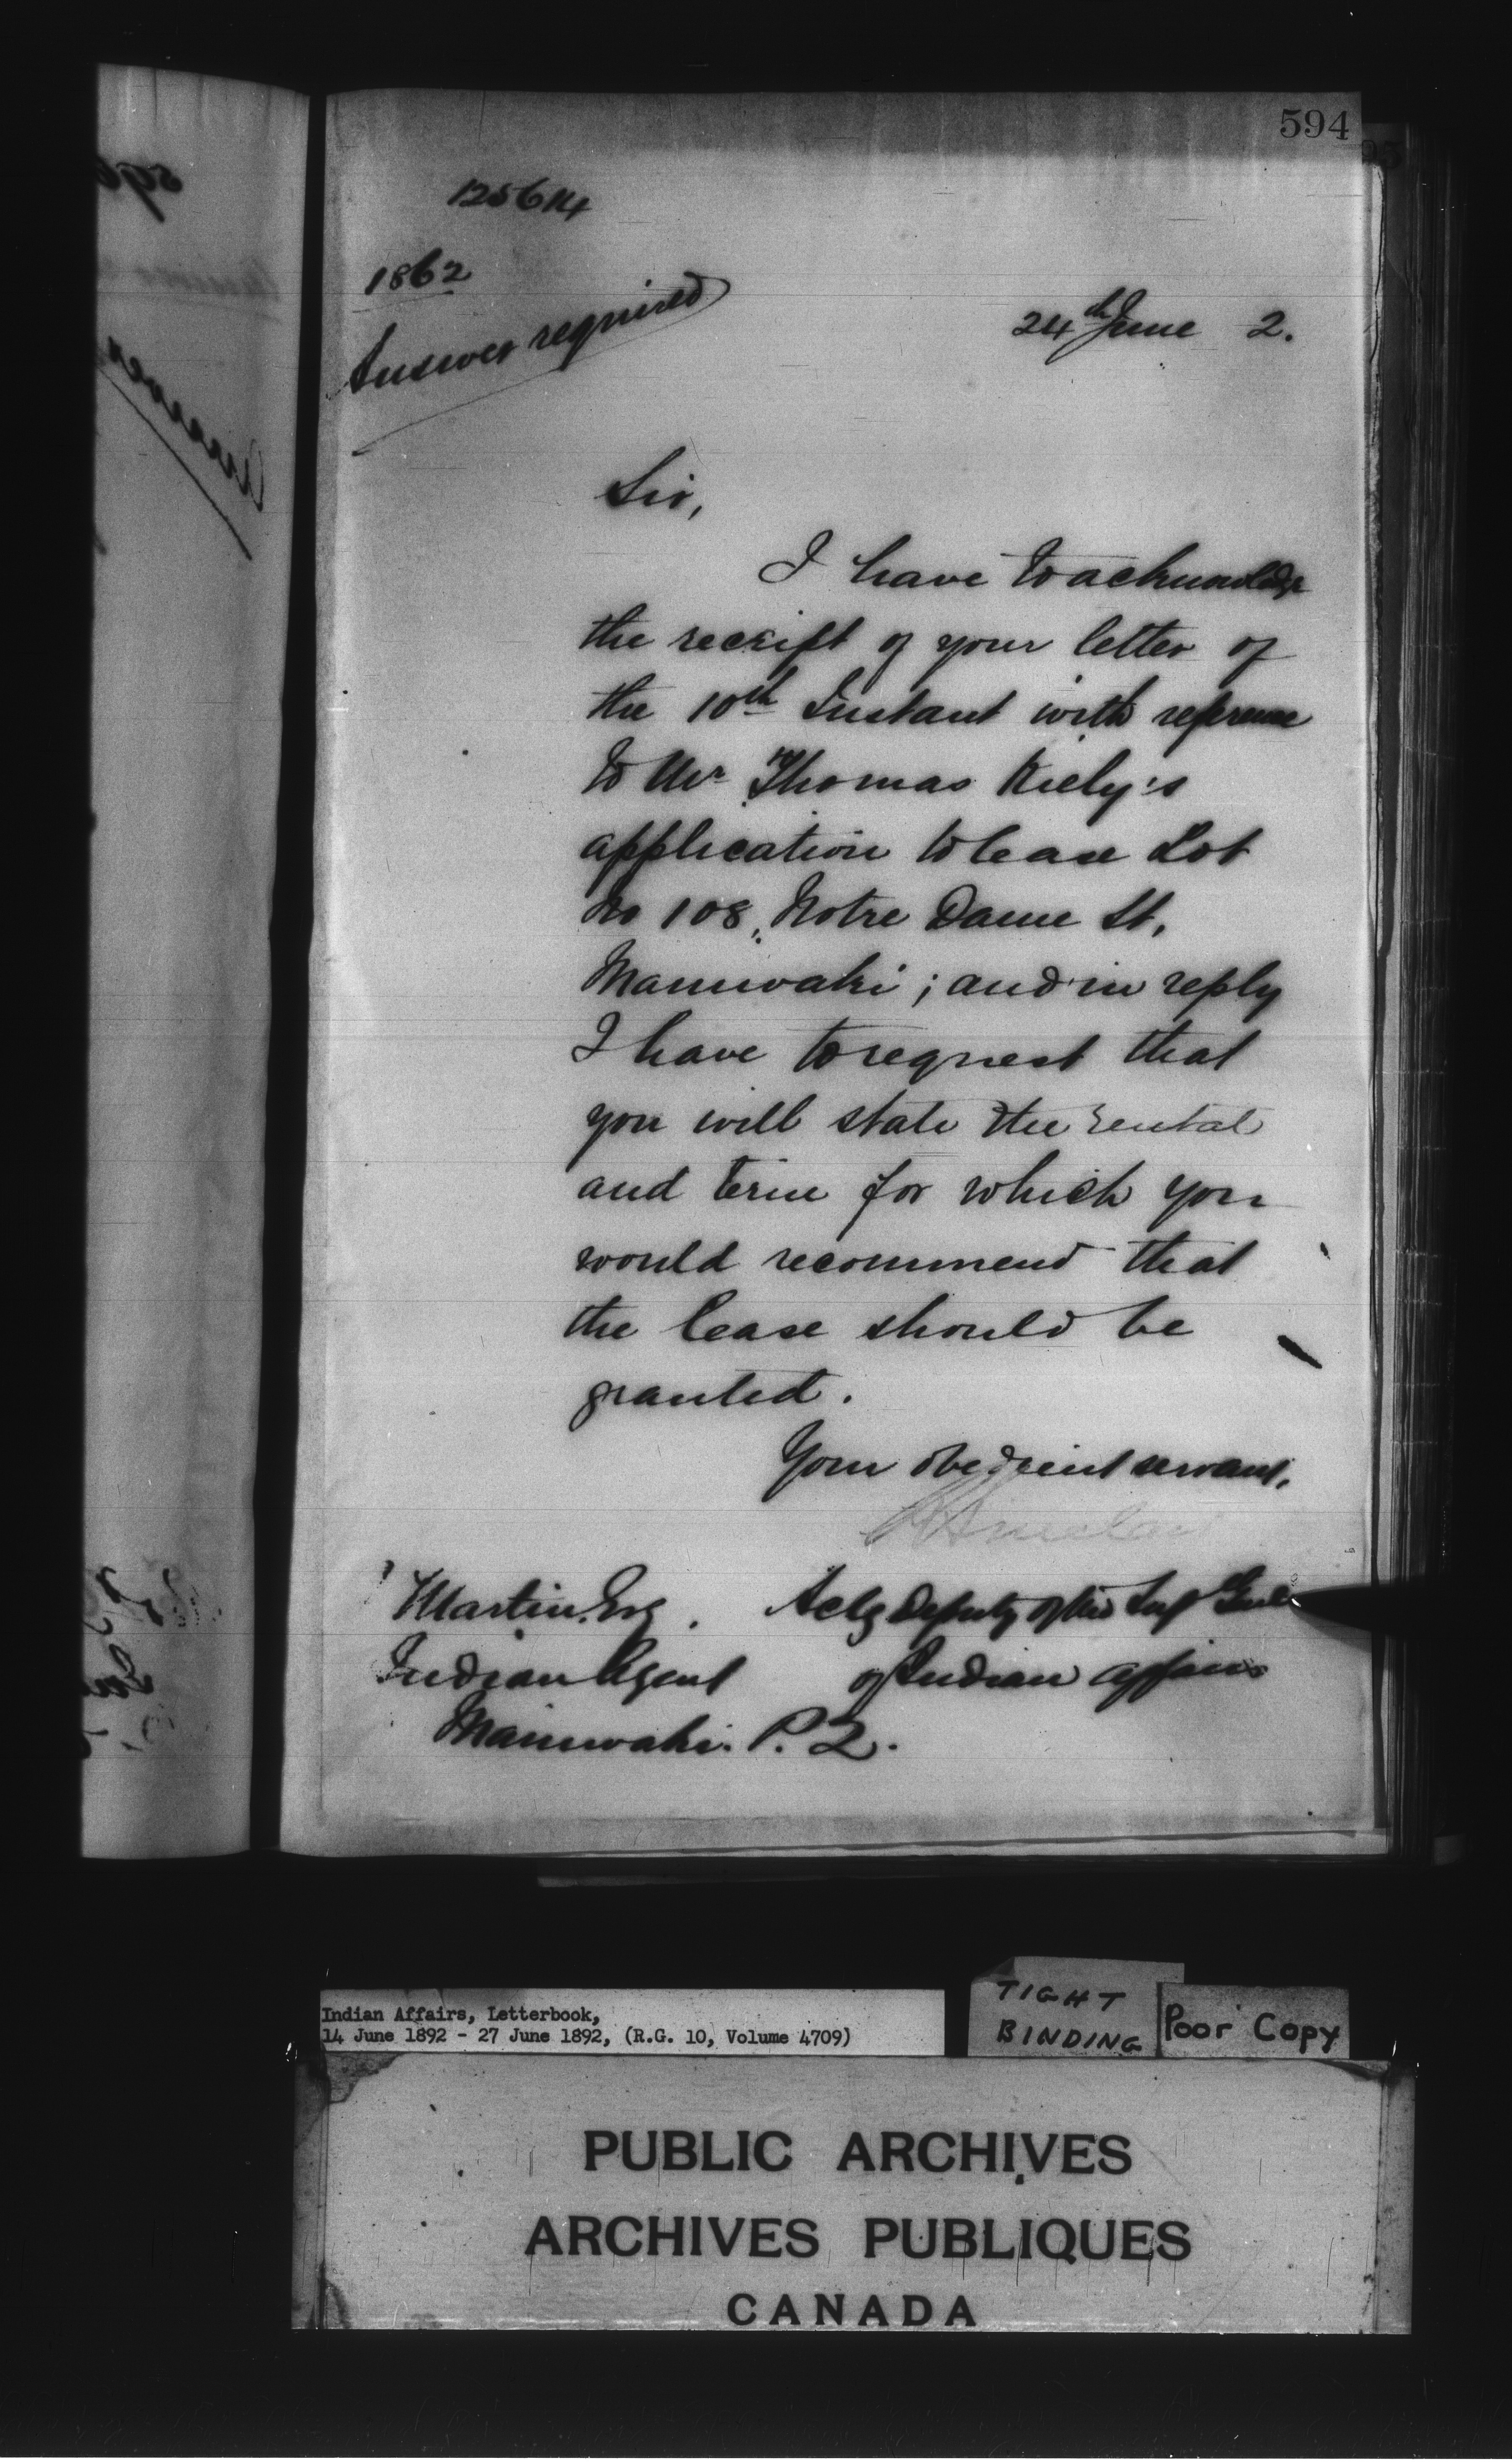 594
125614
1862
Answer required
24th June 2.
Sir,
I have to acknowledge
the receipt of your letter of
the 10th Instant with reference
to Mr Thomas Kiely's
application to lease Lot
No 108, Notre Dame St,
Maniwaki; and in reply
I have to request that
you will state the rental
and term for which you
would recommend that
the lease should be
granted.
Your obedient servant,
Sinclair
Martin Esq. Actg Deputy of the Supt Genl
Indian Agent of Indian Affairs
Maniwaki. P.Q.
Indian Affairs, Letterbook,
14 June 1892 - 27 June 1892, (R.G. 10, Volume 4709)
TIGHT
BINDING
Poor Copy
PUBLIC ARCHIVES
ARCHIVES PUBLIQUES
CANADA